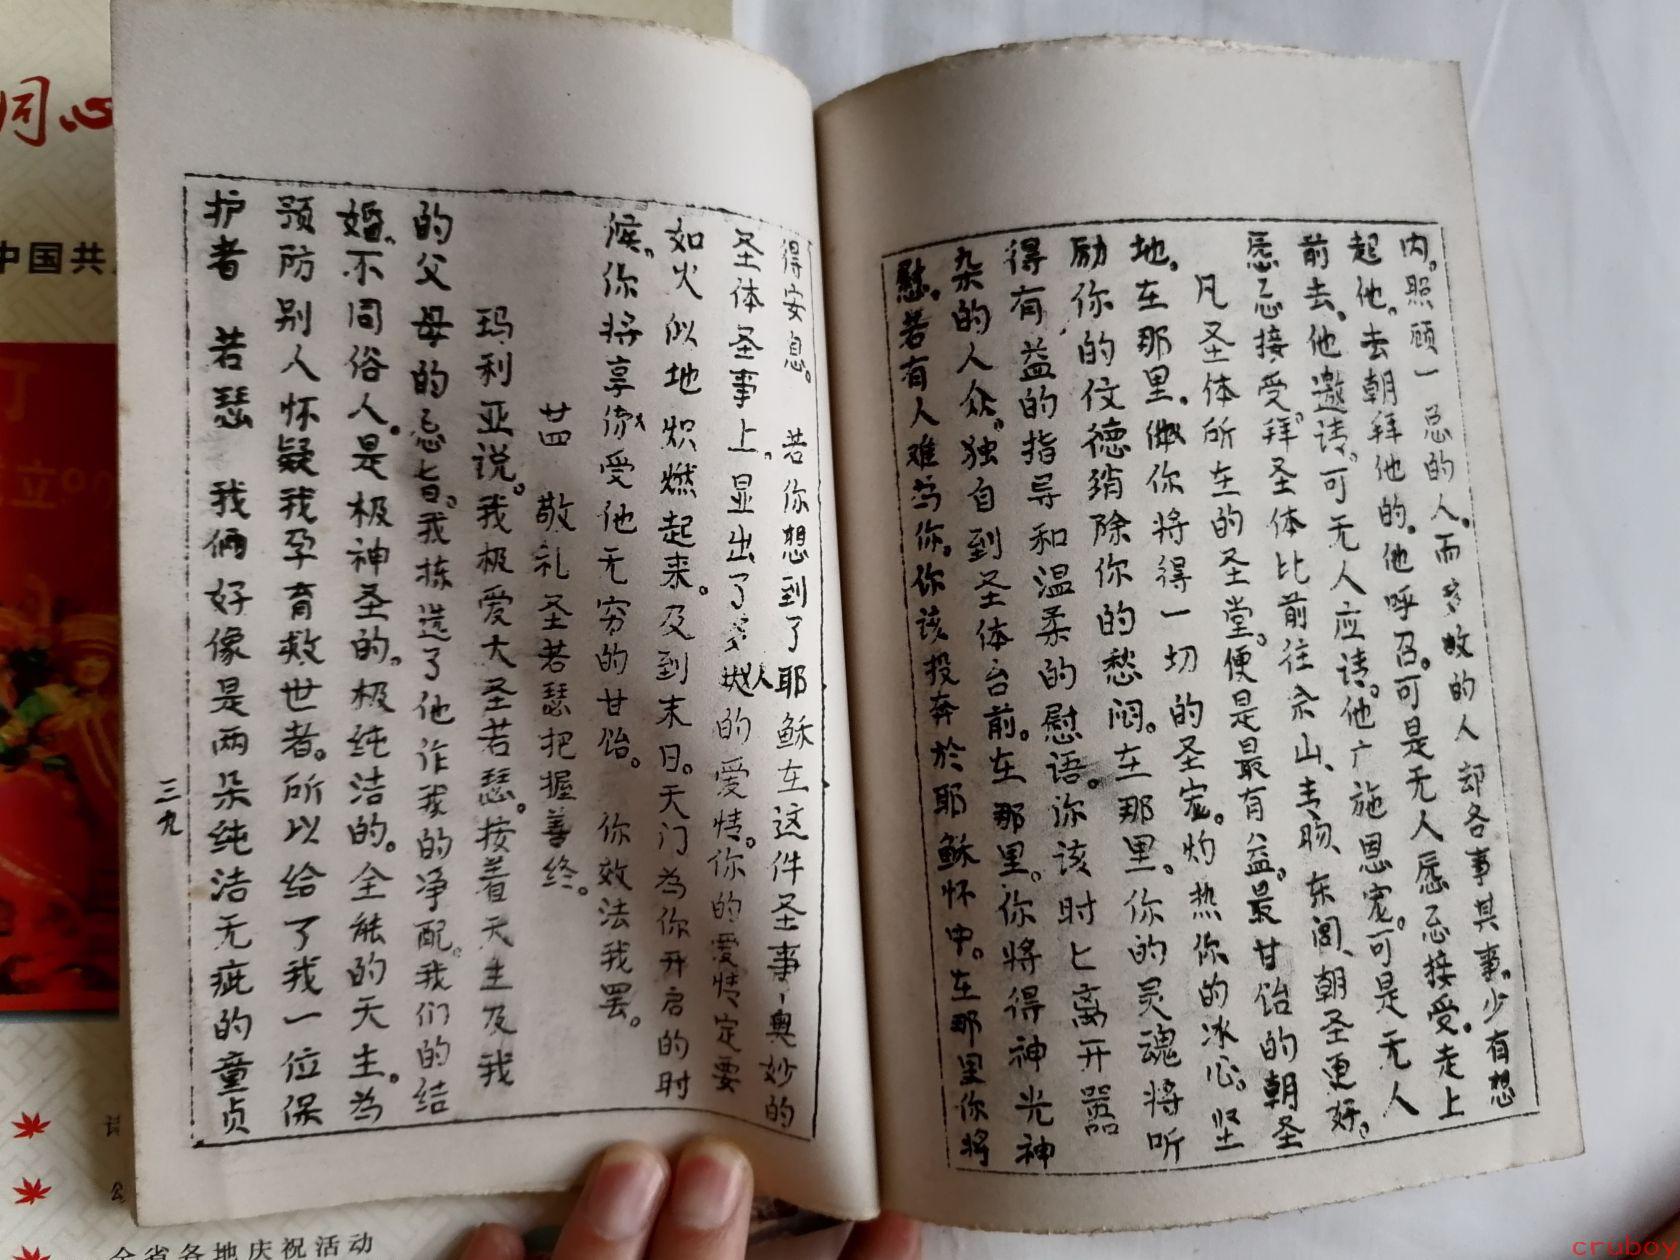 内。照顾一总的人。而多数的人却各事其事。少有想
起他。去朝拜他的。他呼召。可是无人愿意接受。走上
前去。他邀请。可无人应请。他广施恩宠。可是无人
愿意接受。拜圣体比前往佘山、青旸、东闾、朝圣更好。
凡圣体所在的圣堂。便是最有益。最甘饴的朝圣
地。在那里。你将得一切的圣宠。灼热你的冰心。坚
励你的伩德。消除你的愁闷。在那里。你的灵魂将听
得有益的指导和温柔的慰语。你该时匕离开嚣
杂的人众。独自到圣体台前。在那里。你将得神光神
慰。若有人难为你。你该投奔於耶稣怀中。在那里你将
得安息。 若你想到了耶稣在这件圣事-奥妙的
圣体圣事上。显出了多人的爱情。你的爱情定要
如火似地炽燃起来。及到末日。天门为你开启的时
候。你将享受他无穷的甘饴。 你效法我罢。
廿四 敬礼圣若瑟把握善终。
玛利亚说。我极爱大圣若瑟。按着天主及我
的父母的意旨。我拣选了他作我的净配。我们的结
婚。不同俗人。是极神圣的。极纯洁的。全能的天主。为
预防别人怀疑我孕育救世者。所以给了我一位保
护者 若瑟 我俩好像是两朵纯洁无疵的童贞
三九
同心
中国共
立90
全省各地庆祝活动
cruboy